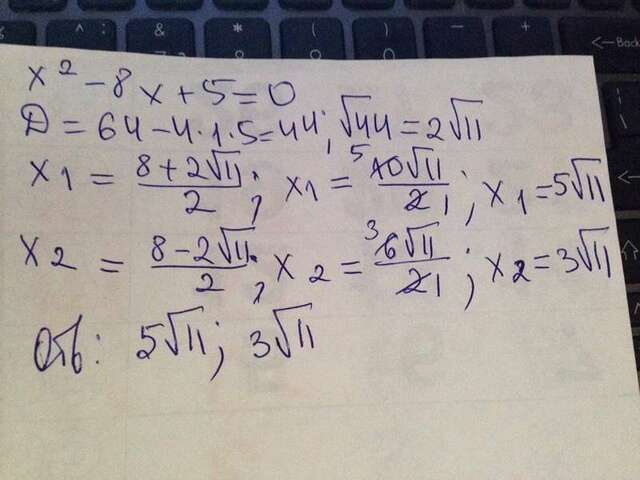 x² - 8x + 5 = 0
Д = 64 - 4·1·5 = 44; √44 = 2√11
x1 = (8 + 2√11)/2; x1 = 5 10√11/2 1; x1 = 5√11
x2 = (8 - 2√11)/2; x2 = 3 6√11/2 1; x2 = 3√11
Отв: 5√11; 3√11